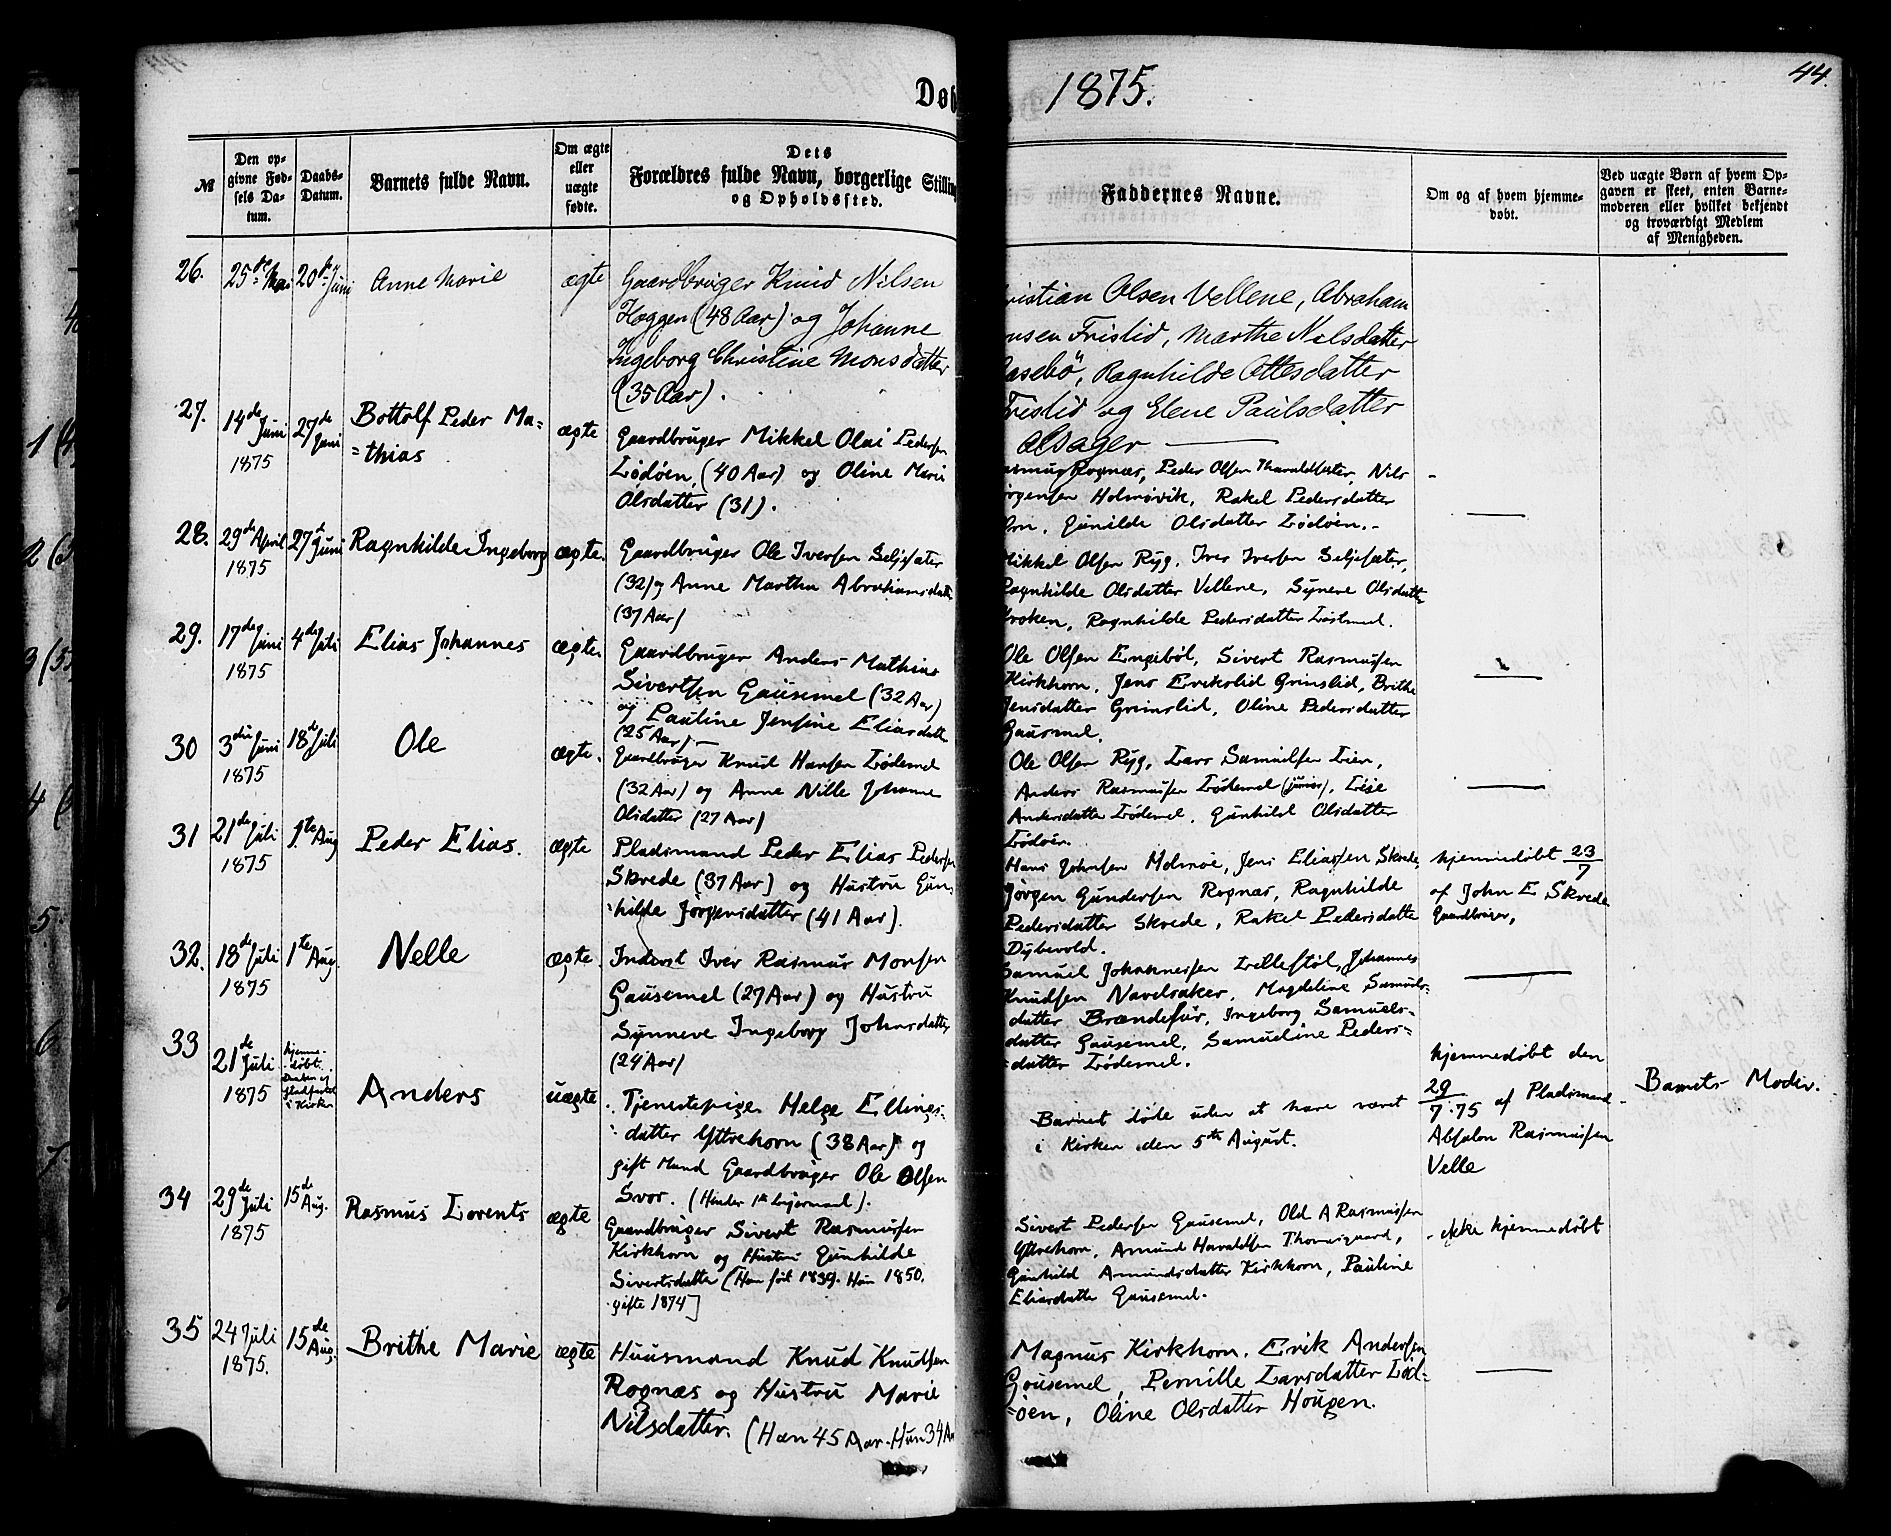 44.
Døb
1875.
№
Den op-
givne Fød-
sels Da-
tum.
Daabs-
Datum.
Barnets fulde Navn.
Om ægte
eller
uægte
født.
Dets
Forældres fulde Navn, borgerlige Stilling
og Opholdssted.
Faddernes Navne.
Om og af hvem hjemme-
døbt.
Ved uægte Børn af hvem Op-
gaven er skeet, enten Barne-
moderen eller hvilket bekjendt
og troværdigt Medlem
af Menigheden.
26.
25de Mai
20de Juni
Anne Marie
ægte
Gaardbruger Knud Nilsen
Hoggen (48 Aar) og Johanne
Ingeborg Christine Monsdatter
(35 Aar).
ristian Olsen Vellene, Abraham
nsen Fristid, Marthe Nilsdatter
asebö, Ragnhilde Ottesdatter
Fristid og Elene Paulsdatter
Alsager
27.
14de Juni
1875
27de Juni
Bottolf Peder Ma-
=thias
ægte
Gaardbruger Mikkel Olai Pedersen
Lødøen, (40 Aar) og Oline Marie
Olsdatter (31).
asmus Rognæs, Peder Olsen Tharaldsæter, Nils
ørgensen Holmøvik, Rakel Pedersdatter
orn, Gunilde Olsdatter Lødøen.-
28.
29de April
1875
27d Juni
Ragnhilde Ingeborg
ægte.
Gaardbruger Ole Iversen Seljesæter
(32) og Anne Martha Abrahamsdatt
(37 Aar)
Mikkel Olsen Ryg, Iver Iversen Seljesæter,
Ragnhilde Olsdatter Vellene, Syneve Olsdatter
roken, Ragnhilde Pedersdatter
29.
17de Juni
1875
4de Juli
Elias Johannes
ægte.
Gaardbruger Anders Mathias
Sivertsen Gausemel (32 Aar)
og Pauline Jensine Eliasdatt
(25 Aar).-
Ole Olsen Engebøl, Sivert Rasmussen
Kirkhorn, Jens Erikslid Grinslid, Brithe
Jensdatter Grinslid, Oline Pedersdatter
Gausmel.
30
3die Juni
1875
18de Juli
Ole
ægte.
Gaardbruger Knud Hansen Lødemel
(32 Aar) og Anne Nille Johanne
Olsdatter (27 Aar)
Ole Olsen Ryg, Lars Samuelsen Lien,
Anders Rasmussen Lødemel (junior), Lise
Andersdatter Lødemel, Gunhild Olsdatter
Lødøen.
31
21de Juli
1875
1ste Aug
Peder Elias.
ægte
Pladsmand Peder Elias Pedersen
Skrede (37 Aar) og Hustru Gun-
hilde Jørgensdatter (41 Aar).
Hans Johnsen Holmøe, Jens Eliassen Skrede,
Jørgen Gundersen Rognæs, Ragnhilde
Pedersdatter Skrede, Rakel Pedersdatte
Dybevold.
hjemmedøbt 23/7
af John E Skrede
Gaardbruger,
32.
18de Juli
1875
1ste Aug.
Nelle
ægte.
Inderst Iver Rasmus Monsen
Gausemel (27 Aar) og Hustru
Synneve Ingeborg Johnsdatter
(24 Aar)
Samuel Johannessen Lillestøl, Johannes
Knudsen Navelsaker, Magdeline Samuels-
datter Brændefur, Ingeborg Samuels-
datter Gausemel, Samueline Peders-
=datter Lødemel.
33
21de Juli
1875
hjemme-
døbt.
i Kirken
Anders
uægte
Tjenestepige Helge Ellings-
datter Yttrehorn (38 Aar) og
gift Mand Gaardbruger Ole Olsen
Svor. (Hendes 1ste Leiermaal).
Barnet døde uden at have været
i Kirken den 5te August.
hjemmedøbt den
29/7.75 af Pladsmand
Absalon Rasmussen
Velle
Barnets Moder.
34
29de Juli
1875
15de Aug.
Rasmus Lorents
ægte
Gaardbruger Sivert Rasmussen
Kirkhorn og Hustru Gunhilde
Sivertsdatter (Han født 1839. Hun 1850.
gifte 1874]
Sivert Pedersen Gausemel, Old A Rasmussen
Yttrehorn, Amund Haraldsen Thomasgaard,
Gunhild Amundsdatter Kirkhorn, Pauline
Eliasdatter Gausemel.
- ikke hjemmedøbt
35
24 Juli
1875.
15de Aug.
Brithe Marie
ægte
Huusmand Knud Knudsen
Rognæs og Hustru Marie
Nilsdatter. (Han 45 Aar. Hun 34 A
Magnus Kirkhorn, Erik Andersen
Gausemel, Pernille Larsdatter Lød-
=øen, Oline Olsdatter Hougen.